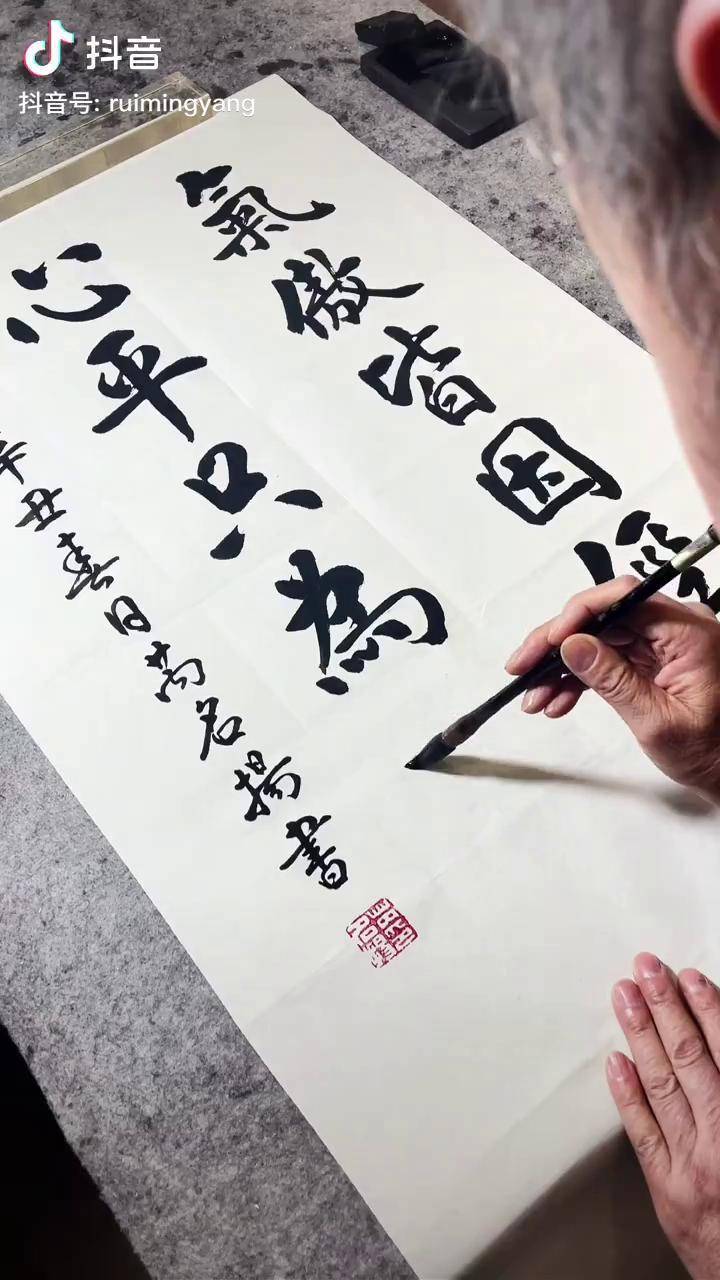 抖音
抖音号: ruimingyang
氣傲皆因
心平只為
辛丑春日芮名揚書